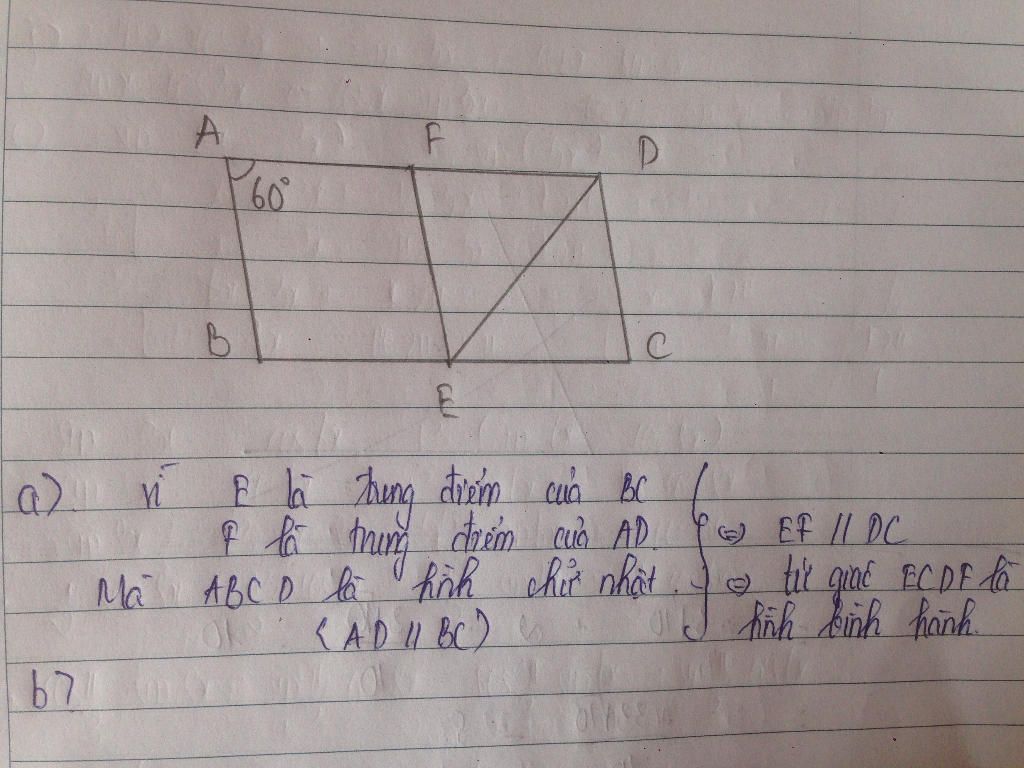 A F D
60°
B C
E
a). vì E là trung điểm của BC
F là trung điểm của AD. ⇔ EF // DC
Mà ABCD là hình chữ nhật. ⇔ tứ giác ECDF là
(AD // BC) hình bình hành.
b)